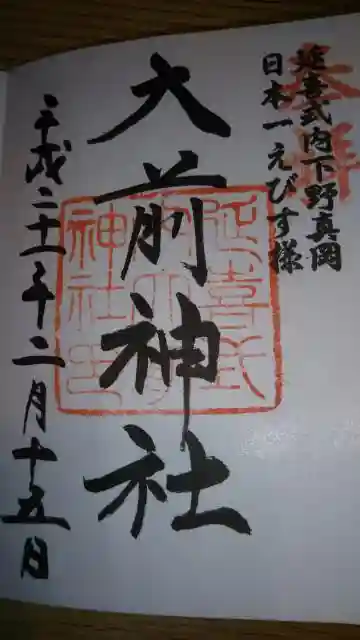 奉拝
延喜式内下野真岡
日本一えびす様
大前神社
延喜式
内大前
神社印
平成二十一年二月十五日